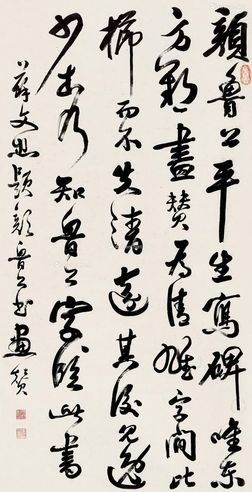 顏魯公平生寫碑唯東
方朔畫贊為清雄字間比
櫛而不失清遠其後見逸
少本乃知魯公字臨此書
蘇文忠題顏魯公書畫贊